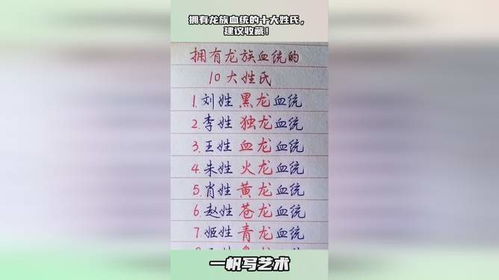 拥有龙族血统的十大姓氏，
建议收藏！
拥有龙族血统的
10大姓氏
1.刘姓 黑龙血统
2.李姓 独龙血统
3.王姓 血龙血统
4.朱姓 火龙血统
5.肖姓 黄龙血统
6.赵姓 苍龙血统
7.姬姓 青龙血统
一帆写艺术